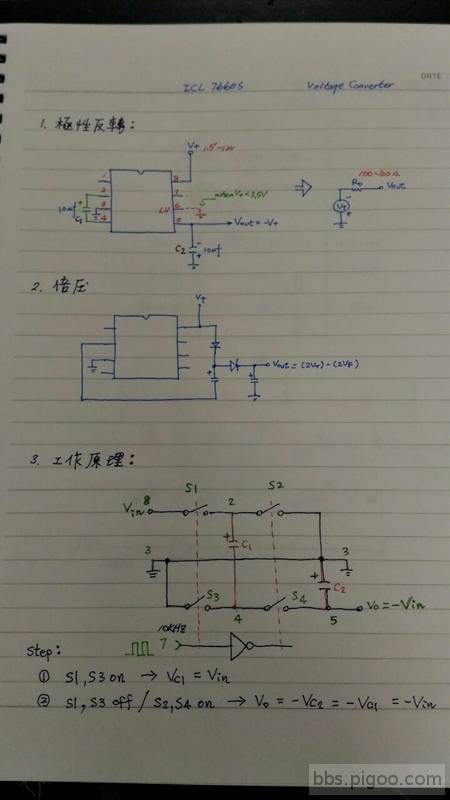 DATE:
ICL 7660S Voltage Converter
1. 極性反轉:
V+ 1.5~12V
1 8
2 7
3 6
4 5
LV
when V+ < 3.5V
10uf
C1
Vout = -V+
C2 10uf
100~300Ω
Ro Vout
V+
2. 倍压
V+
Vout = (2V+) - (2VF)
3. 工作原理:
S1 S2
8 2
Vin
C1
3 3
C2
S3 S4
4 5
Vo = -Vin
10KHZ
7
Step:
① S1, S3 on → VC1 = Vin
② S1, S3 off / S2, S4 on → Vo = -VC2 = -VC1 = -Vin
bbs.pigoo.com